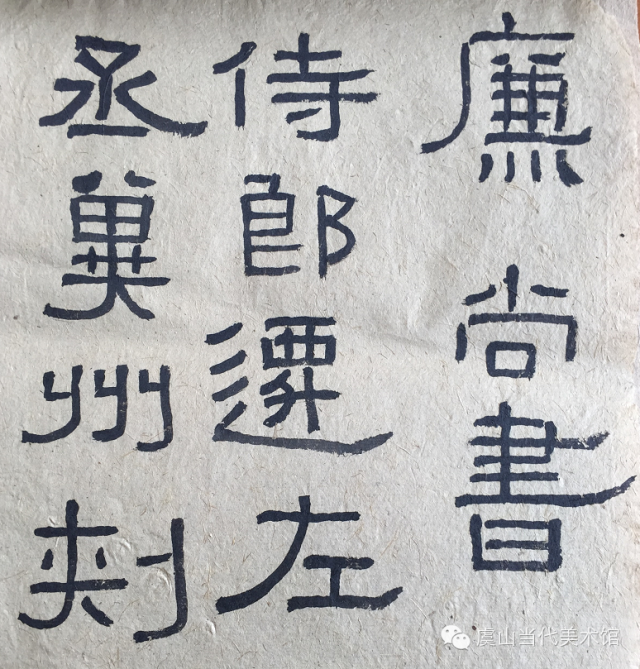 廉尚書
侍郎遷左
丞冀州刾
虞山当代美术馆